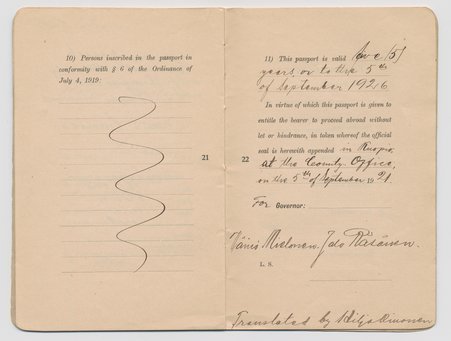 10) Persons inscribed in the passport in
conformity with § 6 of the Ordinance of
July 4, 1919:
21
22
11) This passport is valid five (5)
years or to the 5th
of September 1926
In virtue of which this passport is given to
entitle the bearer to proceed abroad without
let or hindrance, in token whereof the official
seal is herewith appended in Kuopio,
at the County Office,
on the 5th of September 1921.
For Governor:
Väinö Mielonen. Jalo Räsänen.
L. S.
Translated by Hilja